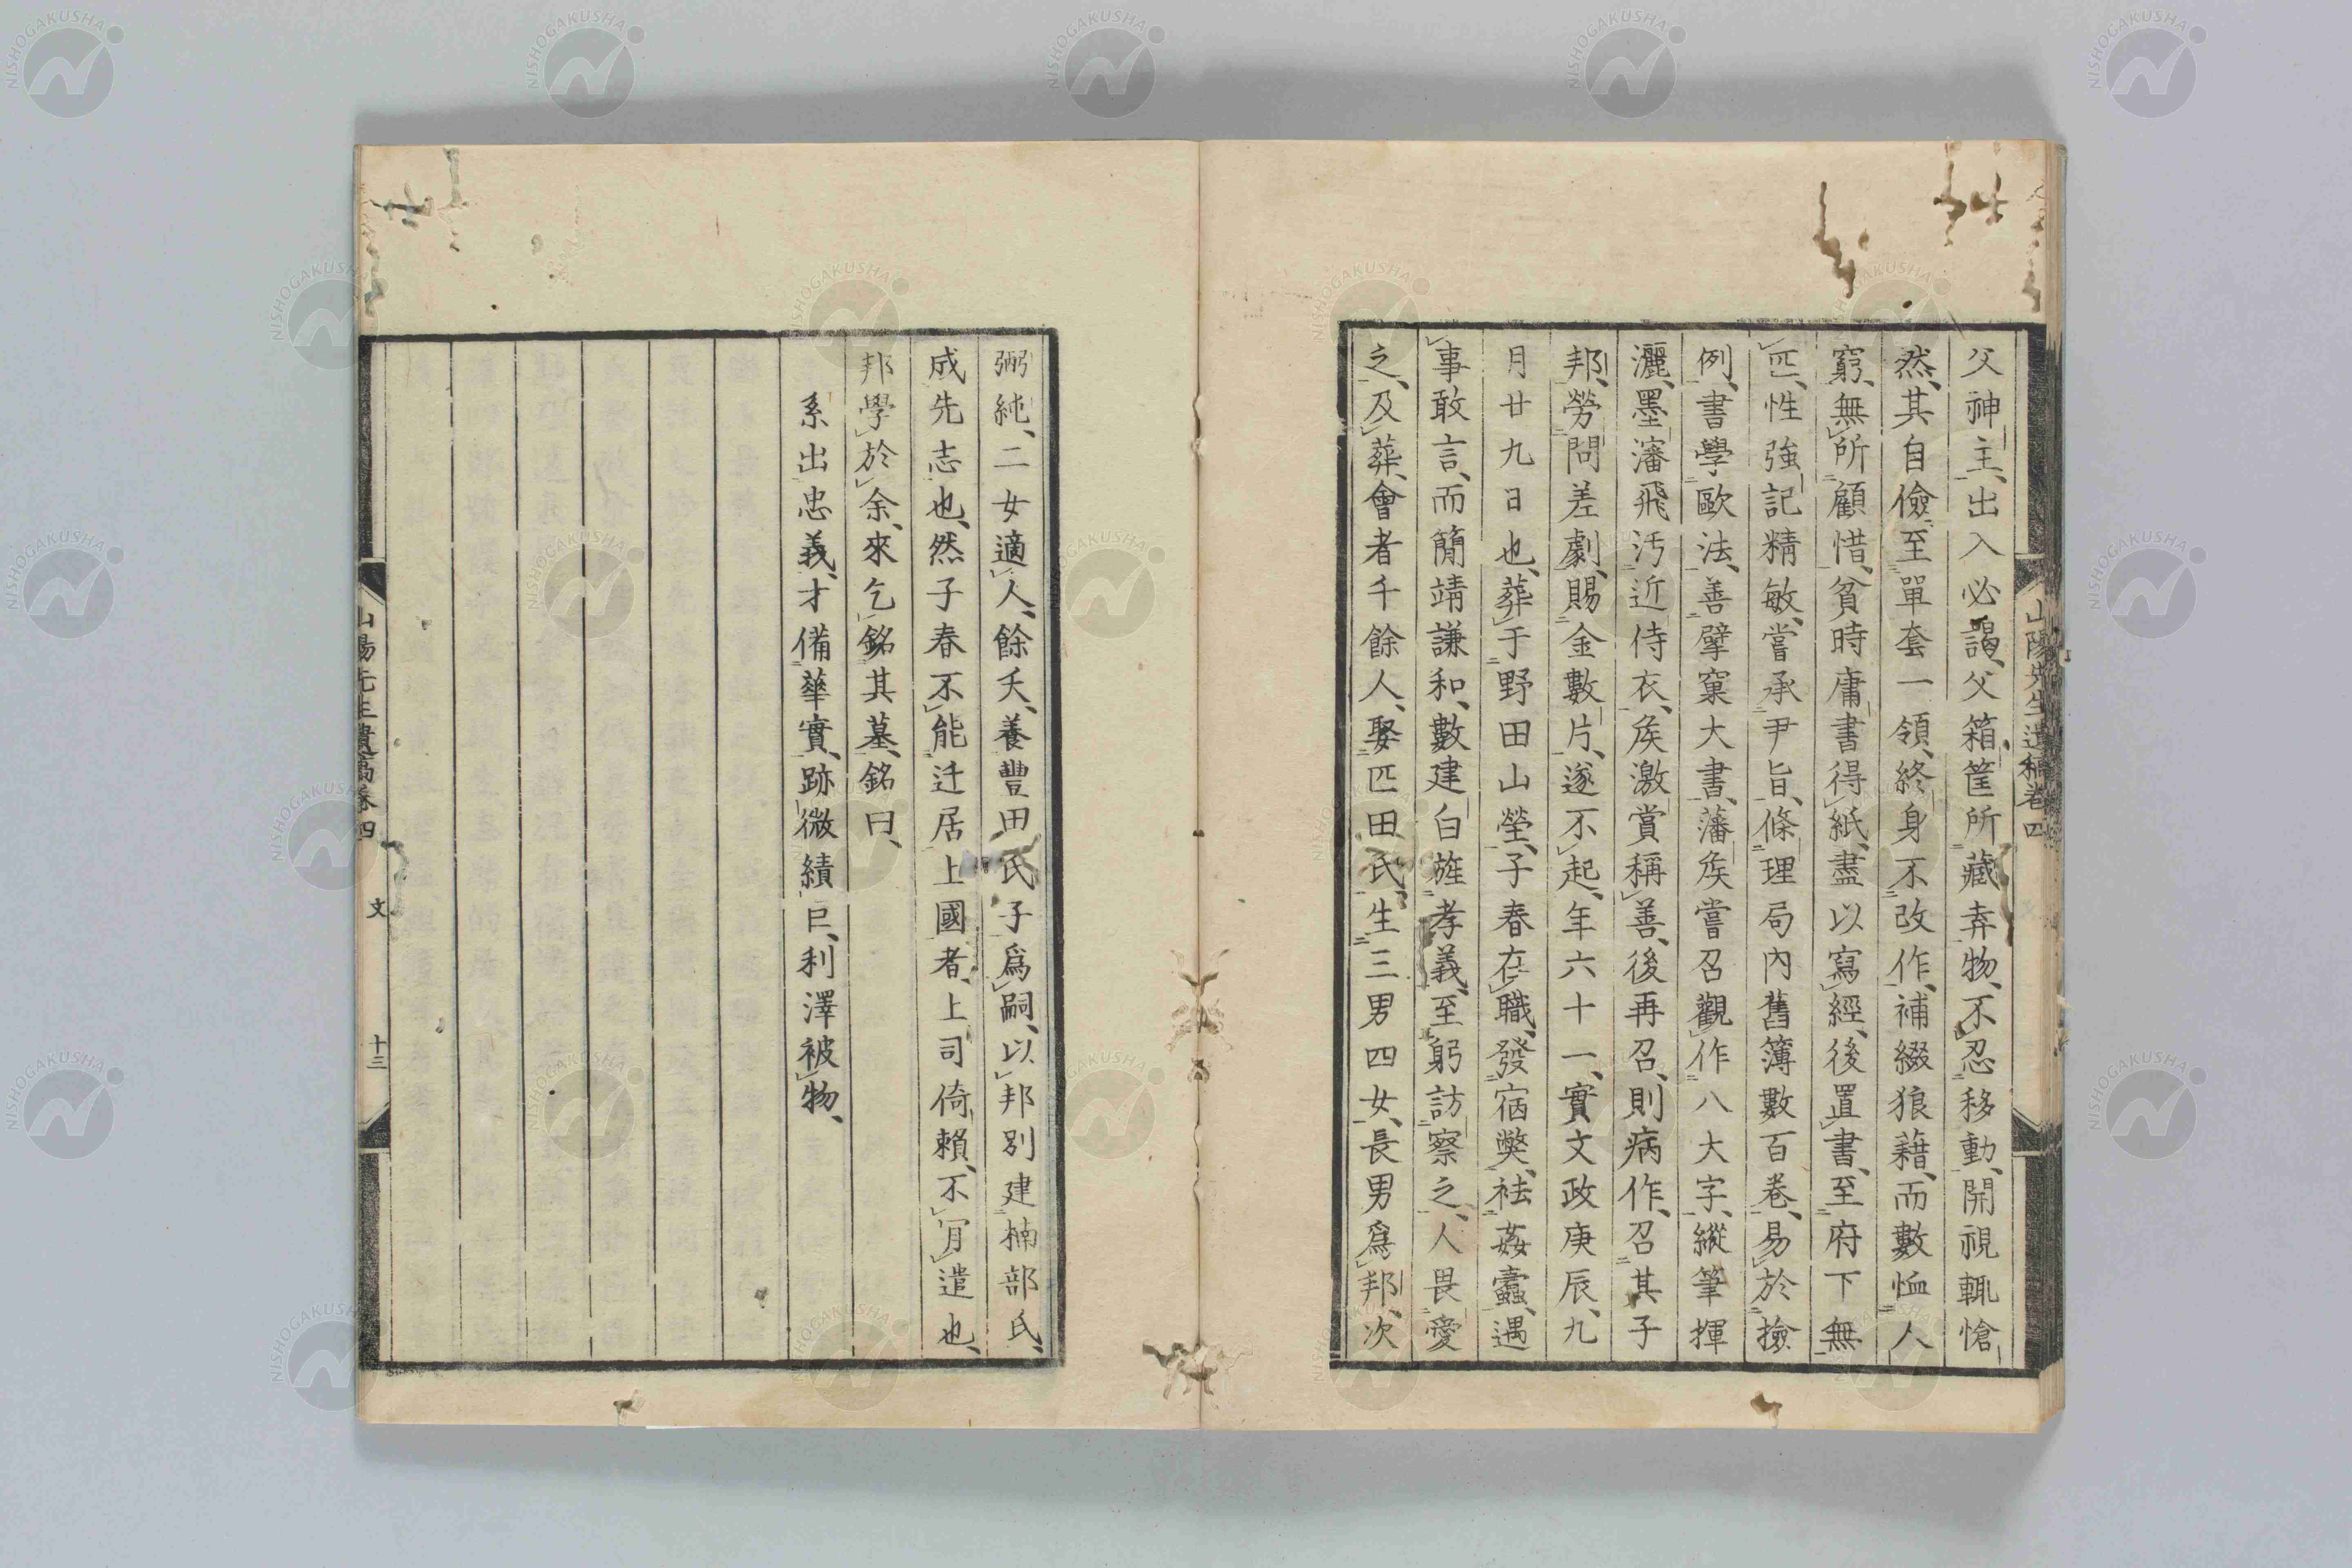 父神主、出入必謁、父箱筐所藏弆物、不忍移動、開視輒愴
然、其自儉至單套一領、終身不改作、補綴狼藉、而數恤人
窮、無所顧惜、貧時庸書得紙、盡以寫經、後置書、至府下無
匹、性強記精敏、嘗承尹旨、條理局內舊簿數百卷、易於撿
例、書學歐法、善擘窠大書、藩矦嘗召觀作八大字、縱筆揮
灑、墨瀋飛汚近侍衣、矦激賞稱善、後再召、則病作、召其子
邦、勞問差劇、賜金數片、遂不起、年六十一、實文政庚辰、九
月廿九日也、葬于野田山塋、子春在職、發宿獘、袪姦蠹、遇
事敢言、而簡靖謙和、數建白旌孝義、至躬訪察之、人畏愛
之、及葬、會者千餘人、娶匹田氏、生三男四女、長男爲邦、次
山陽先生遺稿卷四
弼純、二女適人、餘夭、養豐田氏子爲嗣、以邦別建楠部氏、
成先志也、然子春不能迁居上國者、上司倚賴、不肎遣也、
邦學於余、來乞銘其墓、銘曰、
系出忠義、才備華實、跡微績巨、利澤被物、
山陽先生遺稿卷四 文 十三
NISHOGAKUSHA